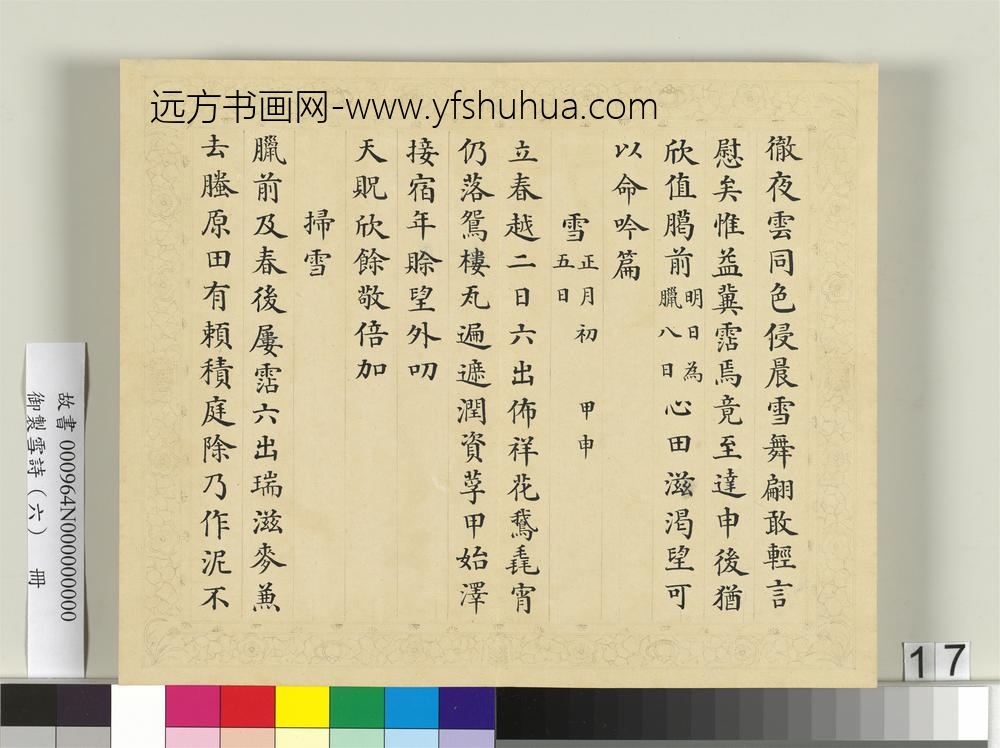 远方书画网-www.yfshuhua.com
徹夜雲同色侵晨雪舞翩敢輕言
慰矣惟益冀霑焉竟至達申後猶
欣值臈前明日為臘八日心田滋渴望可
以命吟篇
雪正月初五日 甲申
立春越二日六出佈祥花鵞毳宵
仍落鴛樓瓦遍遮潤資莩甲始澤
接宿年賒望外叨
天貺欣餘敬倍加
掃雪
臘前及春後屢霑六出瑞滋麥兼
去螣原田有賴積庭除乃作泥不
故書 000964N000000000
御製雪詩（六） 冊
17